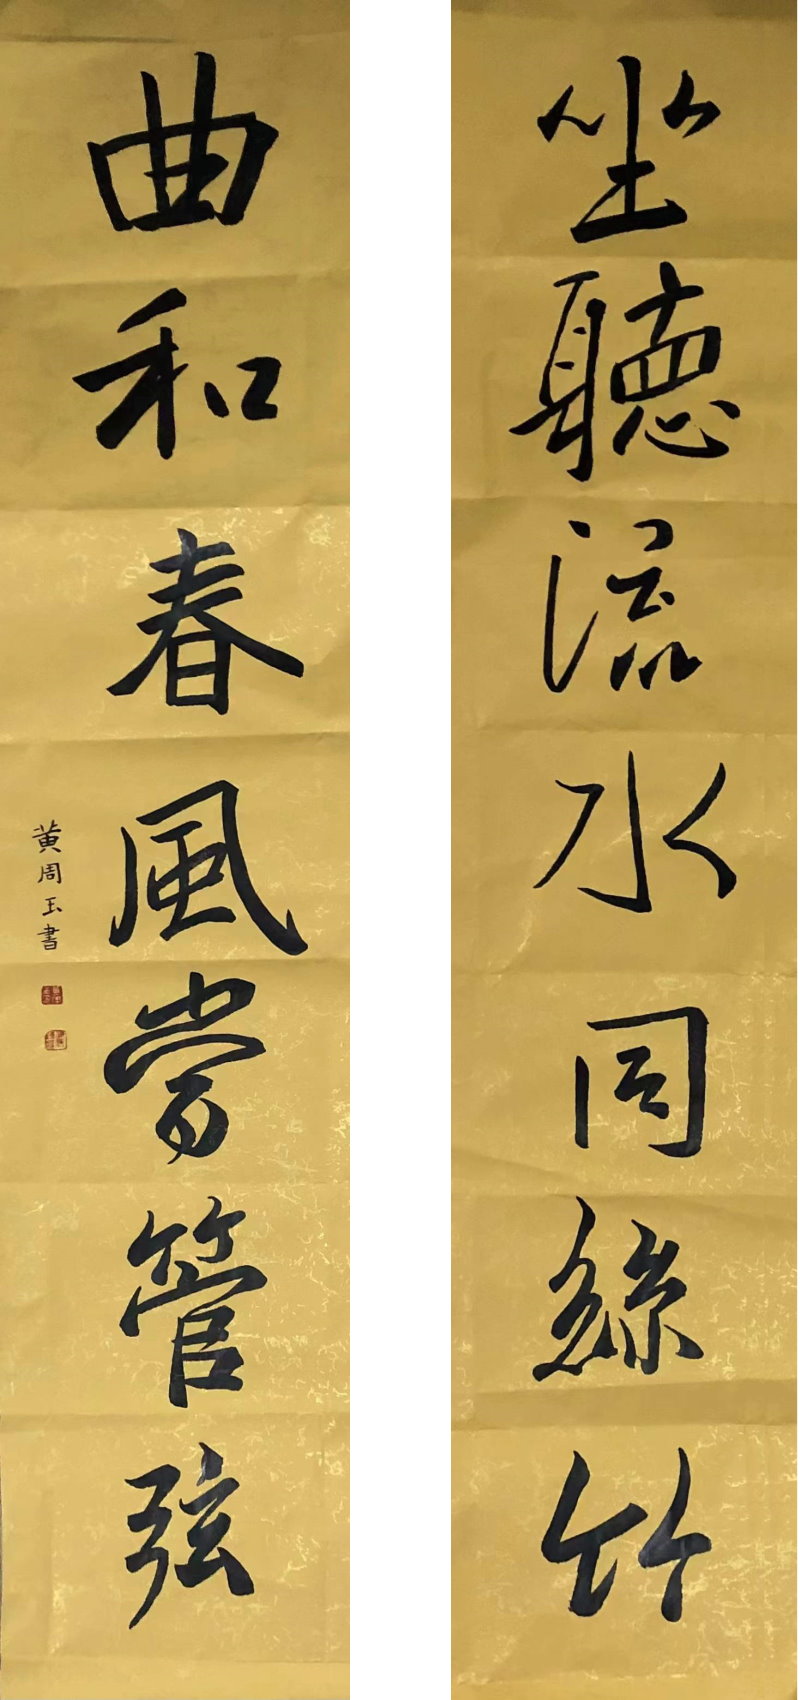 坐聽流水同絲竹
曲和春風當管弦
黄周玉書